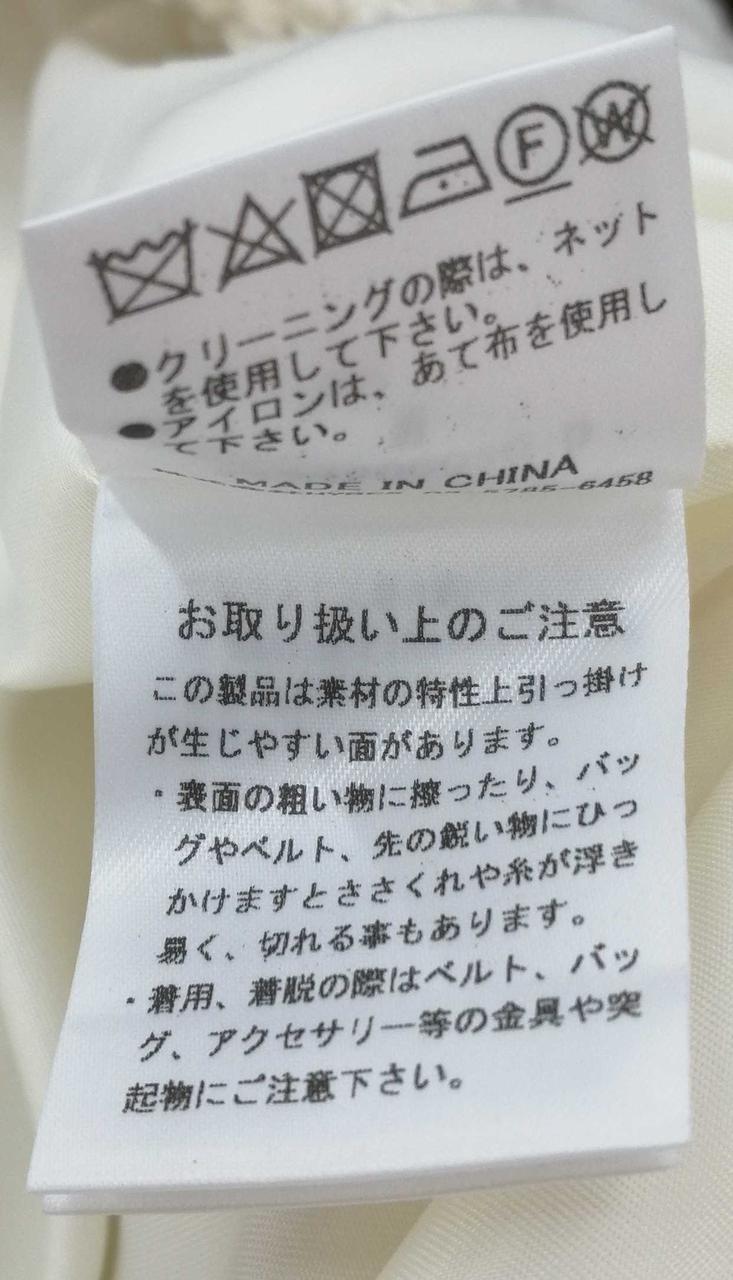 F W
●クリーニングの際は、ネット
を使用して下さい。
●アイロンは、あて布を使用し
て下さい。
MADE IN CHINA
5785-6458
お取り扱い上のご注意
この製品は素材の特性上引っ掛け
が生じやすい面があります。
・表面の粗い物に擦ったり、バッ
グやベルト、先の鋭い物にひっ
かけますとささくれや糸が浮き
易く、切れる事もあります。
・着用、着脱の際はベルト、バッ
グ、アクセサリー等の金具や突
起物にご注意下さい。